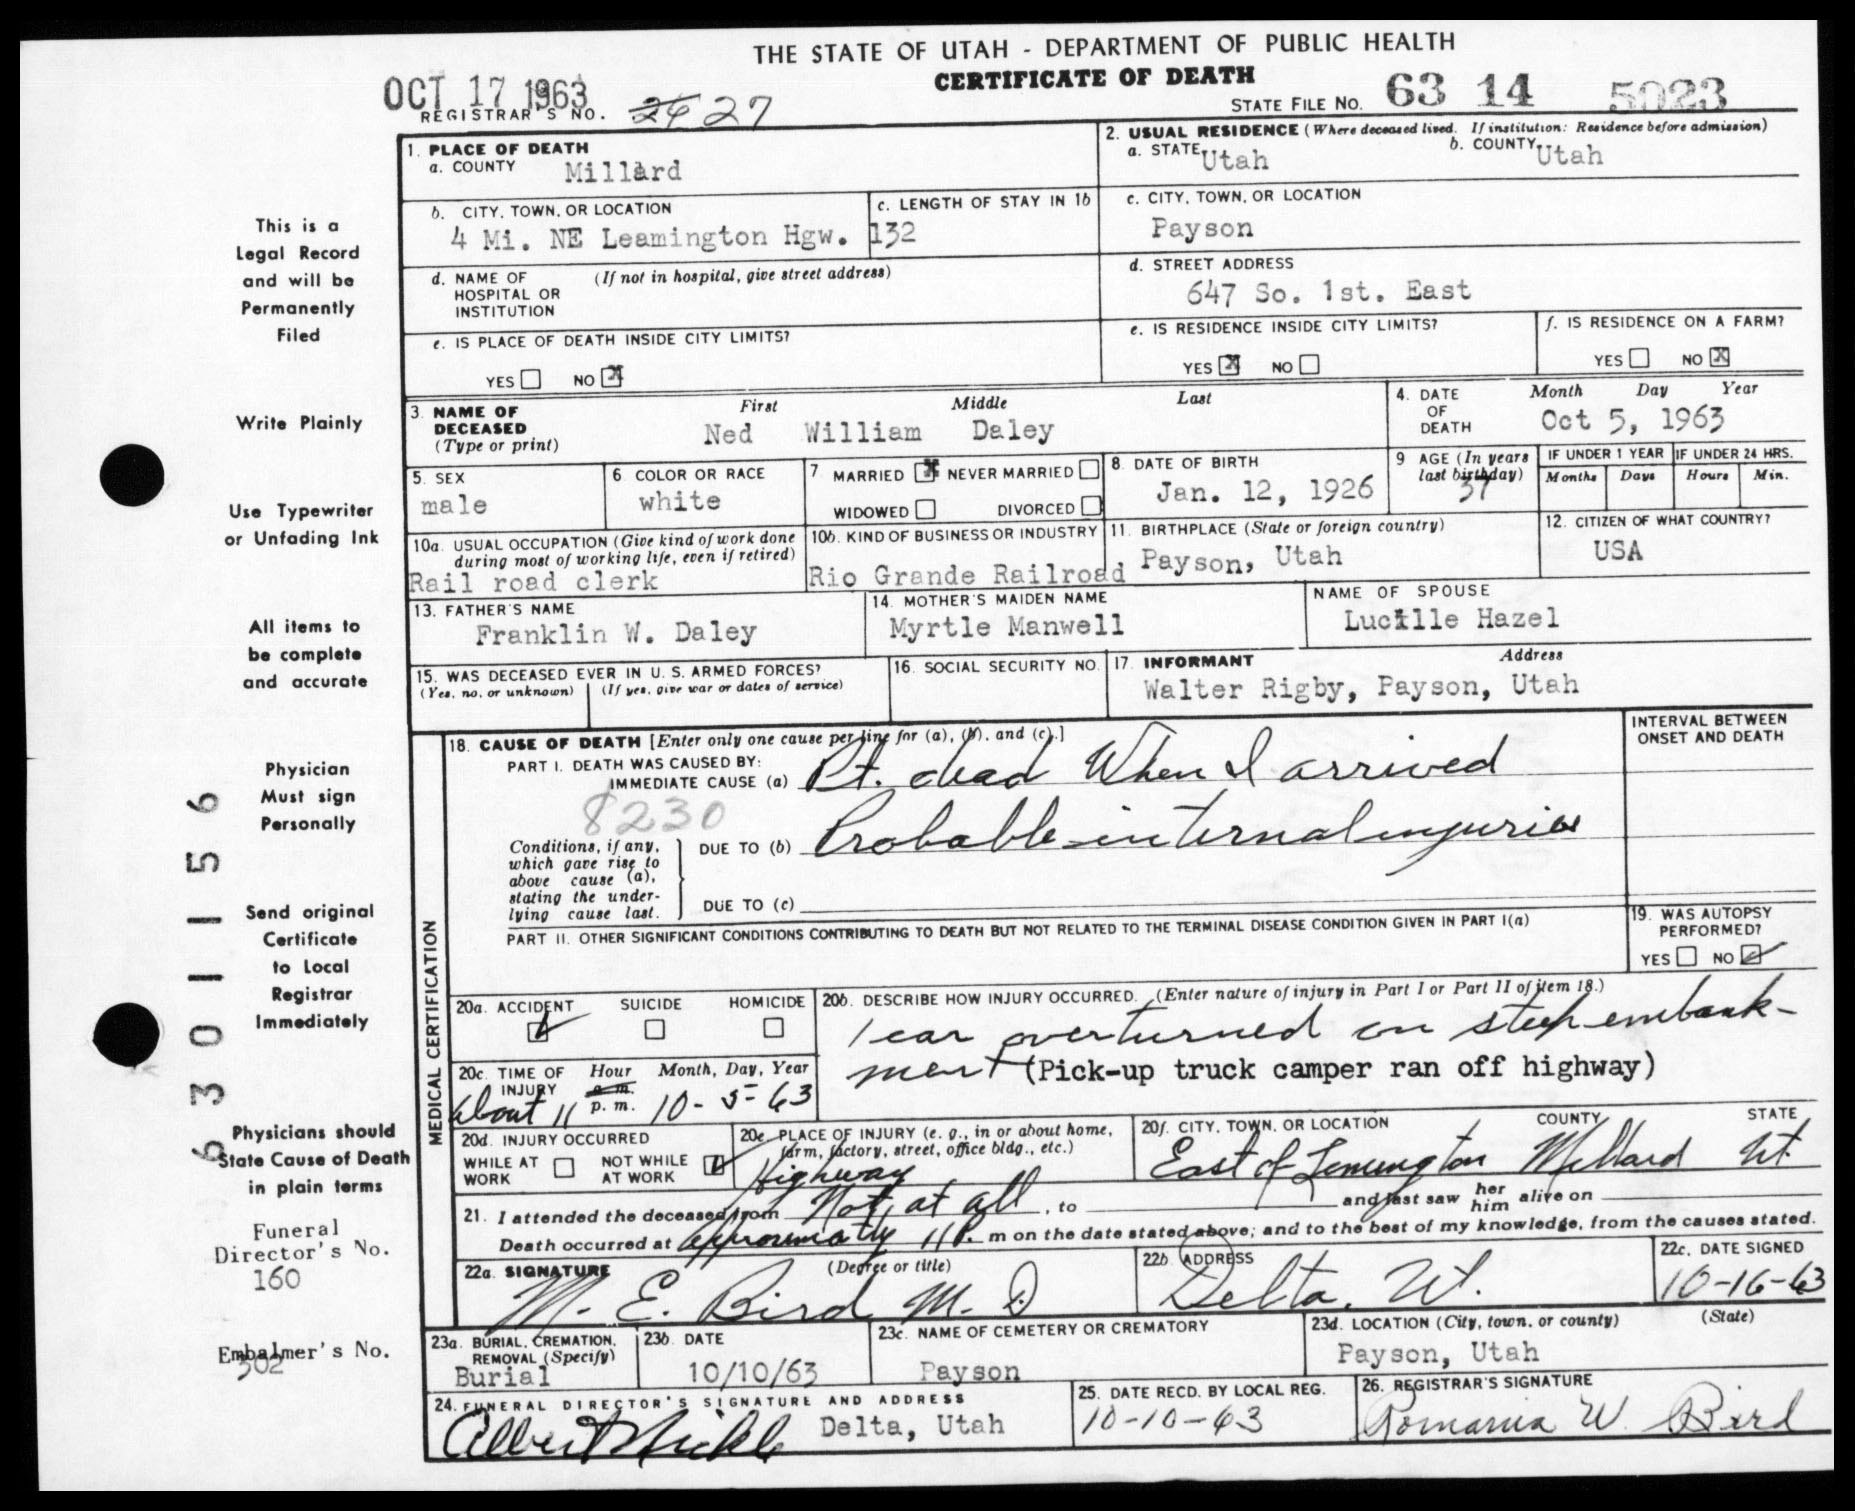 THE STATE OF UTAH - DEPARTMENT OF PUBLIC HEALTH
CERTIFICATE OF DEATH
OCT 17 1963
REGISTRAR'S NO. 26 27
STATE FILE NO. 63 14 5023
1. PLACE OF DEATH
a. COUNTY Millard
2. USUAL RESIDENCE (Where deceased lived. If institution: Residence before admission)
a. STATE Utah b. COUNTY Utah
b. CITY, TOWN, OR LOCATION
4 Mi. NE Leamington Hgw. 132
c. LENGTH OF STAY IN 1b
c. CITY, TOWN, OR LOCATION
Payson
d. NAME OF HOSPITAL OR INSTITUTION (If not in hospital, give street address)
d. STREET ADDRESS
647 So. 1st. East
e. IS PLACE OF DEATH INSIDE CITY LIMITS?
YES NO X
e. IS RESIDENCE INSIDE CITY LIMITS?
YES X NO
f. IS RESIDENCE ON A FARM?
YES NO X
3. NAME OF DECEASED (Type or print)
First Middle Last
Ned William Daley
4. DATE OF DEATH
Month Day Year
Oct 5, 1963
5. SEX
male
6. COLOR OR RACE
white
7. MARRIED X NEVER MARRIED
WIDOWED DIVORCED
8. DATE OF BIRTH
Jan. 12, 1926
9 AGE (In years last birthday)
37
IF UNDER 1 YEAR
Months Days
IF UNDER 24 HRS.
Hours Min.
10a. USUAL OCCUPATION (Give kind of work done during most of working life, even if retired)
Rail road clerk
10b. KIND OF BUSINESS OR INDUSTRY
Rio Grande Railroad
11. BIRTHPLACE (State or foreign country)
Payson, Utah
12. CITIZEN OF WHAT COUNTRY?
USA
13. FATHER'S NAME
Franklin W. Daley
14. MOTHER'S MAIDEN NAME
Myrtle Manwell
NAME OF SPOUSE
Lucille Hazel
15. WAS DECEASED EVER IN U. S. ARMED FORCES?
(Yes, no, or unknown) (If yes, give war or dates of service)
16. SOCIAL SECURITY NO.
17. INFORMANT Address
Walter Rigby, Payson, Utah
MEDICAL CERTIFICATION
18. CAUSE OF DEATH [Enter only one cause per line for (a), (b), and (c).]
INTERVAL BETWEEN ONSET AND DEATH
PART I. DEATH WAS CAUSED BY:
IMMEDIATE CAUSE (a) Pt. dead When I arrived
8230
Conditions, if any, which gave rise to above cause (a), stating the underlying cause last.
DUE TO (b) Probable internal injuries
DUE TO (c)
PART II. OTHER SIGNIFICANT CONDITIONS CONTRIBUTING TO DEATH BUT NOT RELATED TO THE TERMINAL DISEASE CONDITION GIVEN IN PART I(a)
19. WAS AUTOPSY PERFORMED?
YES NO
20a. ACCIDENT SUICIDE HOMICIDE
20b. DESCRIBE HOW INJURY OCCURRED. (Enter nature of injury in Part I or Part II of item 18.)
1 car overturned on steep embank-
ment (Pick-up truck camper ran off highway)
20c. TIME OF INJURY Hour Month, Day, Year
about 11 a.m. p.m. 10-5-63
20d. INJURY OCCURRED
WHILE AT WORK NOT WHILE AT WORK
20e. PLACE OF INJURY (e. g., in or about home, farm, factory, street, office bldg., etc.)
Highway
20f. CITY, TOWN, OR LOCATION COUNTY STATE
East of Lemington Millard Ut.
21. I attended the deceased from Not at all, to and last saw her him alive on
Death occurred at approximatly 11 P. m on the date stated above; and to the best of my knowledge, from the causes stated.
22a. SIGNATURE (Degree or title)
M. E. Bird M. D.
22b. ADDRESS
Delta, Ut.
22c. DATE SIGNED
10-16-63
23a. BURIAL, CREMATION, REMOVAL (Specify)
Burial
23b. DATE
10/10/63
23c. NAME OF CEMETERY OR CREMATORY
Payson
23d. LOCATION (City, town, or county) (State)
Payson, Utah
24. FUNERAL DIRECTOR'S SIGNATURE AND ADDRESS
Albert Nickle Delta, Utah
25. DATE RECD. BY LOCAL REG.
10-10-63
26. REGISTRAR'S SIGNATURE
Romania W. Bird
This is a
Legal Record
and will be
Permanently
Filed
Write Plainly
Use Typewriter
or Unfading Ink
All items to
be complete
and accurate
Physician
Must sign
Personally
Send original
Certificate
to Local
Registrar
Immediately
Physicians should
State Cause of Death
in plain terms
Funeral
Director's No.
160
Embalmer's No.
302
63011556